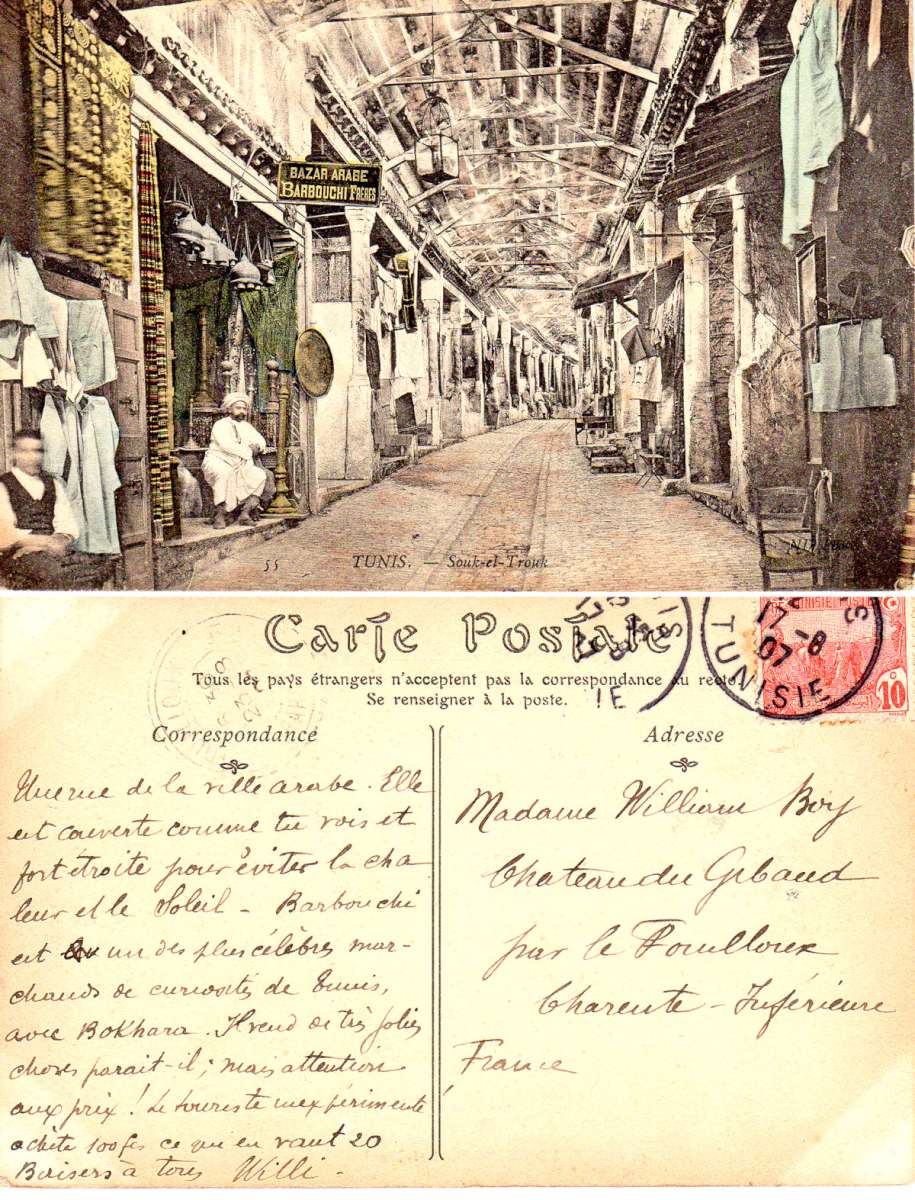 BAZAR ARABE
BARBOUCHI FRÈRES
55 TUNIS. — Souk-el-Trouk
Carte Postale
Tous les pays étrangers n'acceptent pas la correspondance au recto.
Se renseigner à la poste.
TUNISIE
17 -8
07
TUNISIE POSTES
10
Correspondance
Une rue de la ville arabe. Elle
est couverte comme tu vois et
fort étroite pour éviter la cha
leur et le Soleil - Barbouchi
est un des plus célèbres mar-
chands de curiosités de Tunis,
avec Bokhara. Il vend de très jolies
choses parait-il; mais attention
aux prix! Le touriste inexpérimenté
achète 100 fcs ce qui en vaut 20
Baisers à tous Willi -
Adresse
Madame William Boy
Chateau du Gibaud
par le Fouilloux
Charente - Inférieure
France